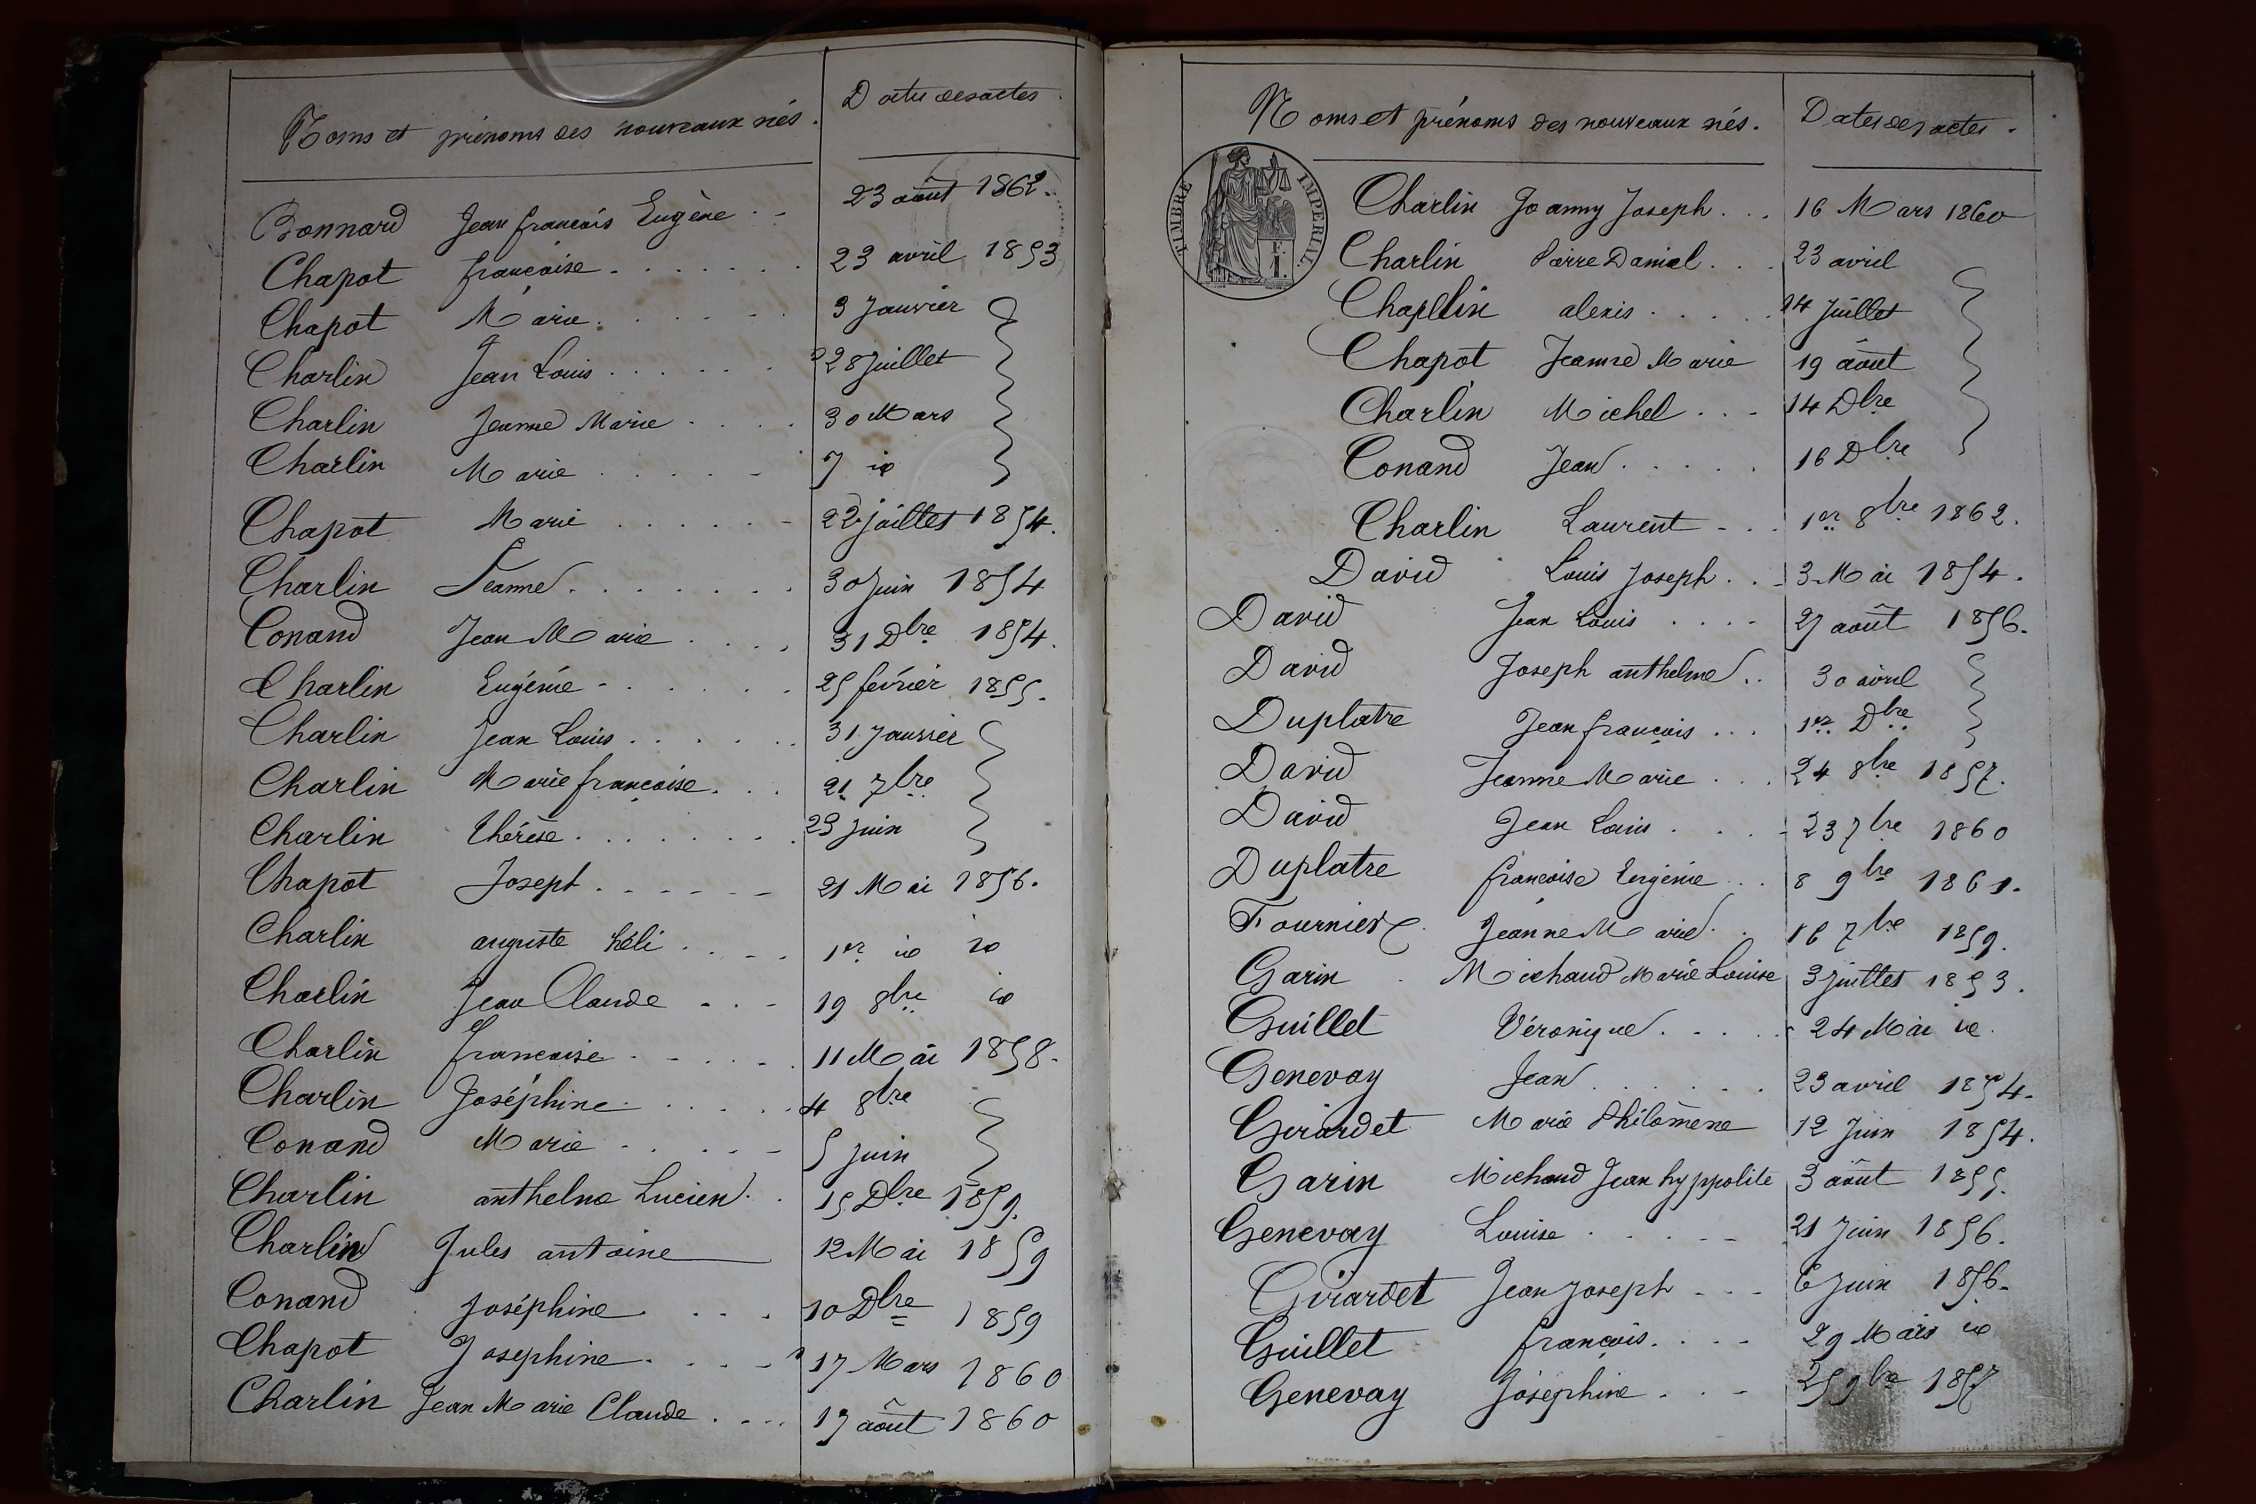 Noms et prénoms des nouveaux nés. Dates des actes.
Bonnard Jean françois Eugène 23 août 1862.
Chapot françoise 23 avril 1853
Chapot Marie 3 Janvier
Charlin Jean Louis 28 Juillet
Charlin Jeanne Marie 30 Mars
Charlin Marie 7 id
Chapot Marie 22 juillet 1854.
Charlin Jeanne 30 Juin 1854
Conand Jean Marie 31 Dbre 1854.
Charlin Eugénie 25 février 1855.
Charlin Jean Louis 31 Janvier
Charlin Marie françoise 21 7bre
Charlin thérèse 23 Juin
Chapot Joseph 21 Mai 1856.
Charlin auguste héli 1er id id
Charlin Jean Claude 19 8bre id
Charlin françoise 11 Mai 1858.
Charlin Joséphine 4 8bre
Conand Marie 5 Juin
Charlin anthelme Lucien 15 Dbre 1859.
Charlin Jules antoine 12 Mai 1859
Conand Joséphine 10 Dbre 1859
Chapot Josephine 17 Mars 1860
Charlin Jean Marie Claude 17 août 1860
Noms et prénoms des nouveaux nés. Dates des actes.
TIMBRE IMPERIAL
Charlin Joanny Joseph 16 Mars 1860
Charlin Pierre Daniel 23 avril
Chapllin alexis 14 Juillet
Chapot Jeanne Marie 19 août
Charlin Michel 14 Dbre
Conand Jean 16 Dbre
Charlin Laurent 1er 8bre 1862.
David Louis Joseph 3 Mai 1854.
David Jean Louis 27 août 1856.
David Joseph anthelme 30 avril
Duplatre Jean françois 1er Dbre
David Jeanne Marie 24 8bre 1857.
David Jean Louis 23 7bre 1860
Duplatre françoise Eugénie 8 9bre 1861.
Fournier Jeanne Marie 16 7bre 1859.
Garin Michaud Marie Louise 3 juillet 1853.
Guillet Véronique 24 Mai id.
Genevay Jean 23 avril 1854.
Girardet Marie Philomène 12 Juin 1854.
Garin Michaud Jean hyppolite 3 août 1855.
Genevay Louise 21 Juin 1856.
Girardet Jean Joseph 6 Juin 1856.
Guillet françois 29 Mars id
Genevay Joséphine 25 9bre 1857